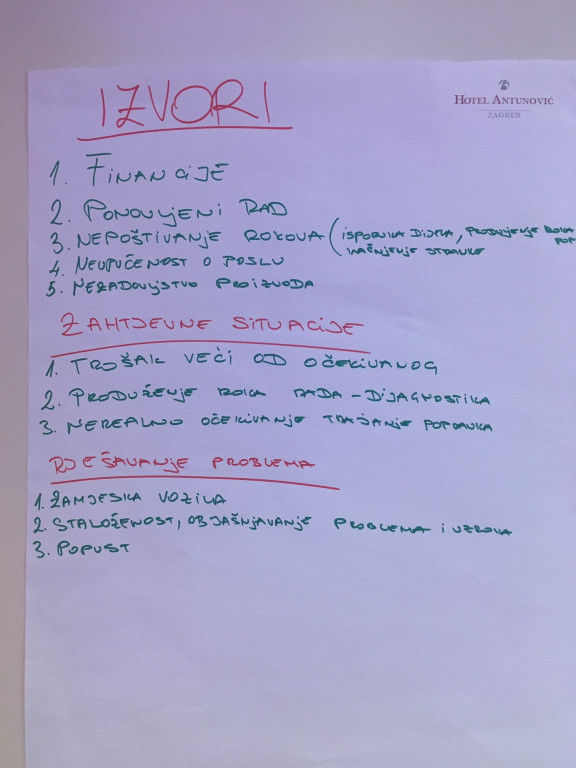 IZVORI
HOTEL ANTUNOVIĆ
ZAGREB
1. FINANCIJE
2. PONOVLJENI RAD
3. NEPOŠTIVANJE ROKOVA (ISPORUKA DIJELA, PRODULJENJE ROKA
KAŠNJENJE STRANKE
4. NEUPUĆENOST O POSLU
5. NEZADOVOLJSTVO PROIZVODA
ZAHTJEVNE SITUACIJE
1. TROŠAK VEĆI OD OČEKIVANOG
2. PRODUŽENJE ROKA RADA - DIJAGNOSTIKA
3. NEREALNO OČEKIVANJE TRAJANJE POPRAVKA
RJEŠAVANJE PROBLEMA
1. ZAMJENSKA VOZILA
2. STALOŽENOST, OBJAŠNJAVANJE PROBLEMA I UZROKA
3. POPUST